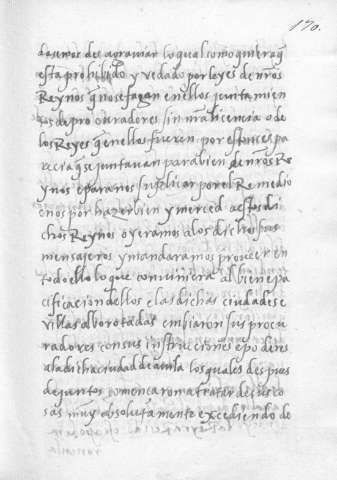 170.
dasemos desagraviar lo qual como quiera q̃
esta prohibido y vedado por leyes de nr̃os
Reynos q̃ no se fagan en ellos juntamien
tos de procuradores sin nr̃a licencia o de
los Reyes q̃ en ellos fueren por estonces pa
recia q̃ se juntavan para bien de nr̃os Re
ynos e para nos suplicar por el Remedio
e nos por hazer bien y merced a estos di
chos Reynos oyeramos a los dichos sus
mensajeros y mandaramos proveer en
todo ello lo que conviniera al bien e pa
cificacion dellos e las dichas ciudades e
villas alborotadas embiaron sus procu
radores con sus instrucciones e poderes
a la dicha ciudad de avila los quales despues
de juntos començaron a tratar de sus co
sas muy absolutamente excediendo de